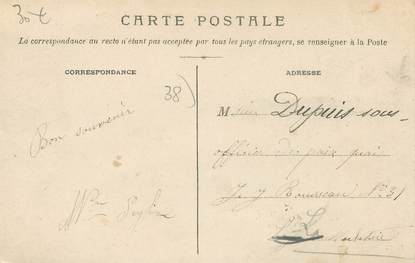 30€
CARTE POSTALE
La correspondance au recto n'étant pas acceptée par tous les pays étrangers, se renseigner à la Poste
CORRESPONDANCE
ADRESSE
38)
Bon souvenir
M Dupuis sous-
officier de paix quai
J. J. Rousseau N° 31